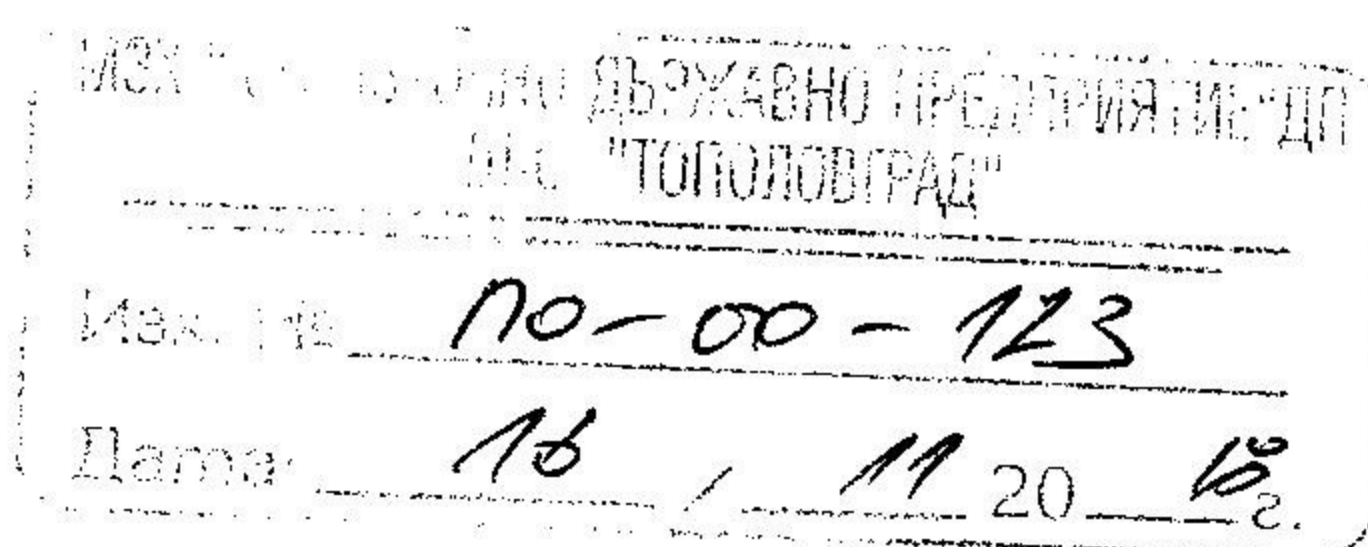 ДЪРЖАВНО ПРЕДПРИЯТИЕ" ДП
"ТОПОЛОВГРАД"
Изх. № ПО-00-123
Дата: 16 / 11 2018 г.